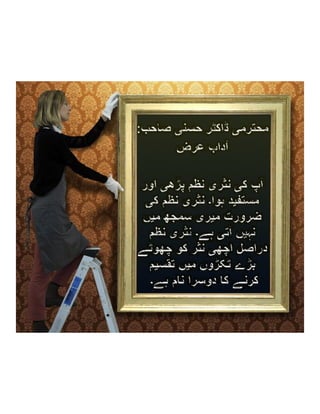 محترمی ڈاکٹر حسنی صاحب:
آداب عرض
آپ کی نثری نظم پڑھی اور
مستفید ہوا۔ نثری نظم کی
ضرورت میری سمجھ میں
نہیں آتی ہے۔ نثری نظم
دراصل اچھی نثر کو چھوٹے
بڑے ٹکڑوں میں تقسیم
کرنے کا دوسرا نام ہے۔